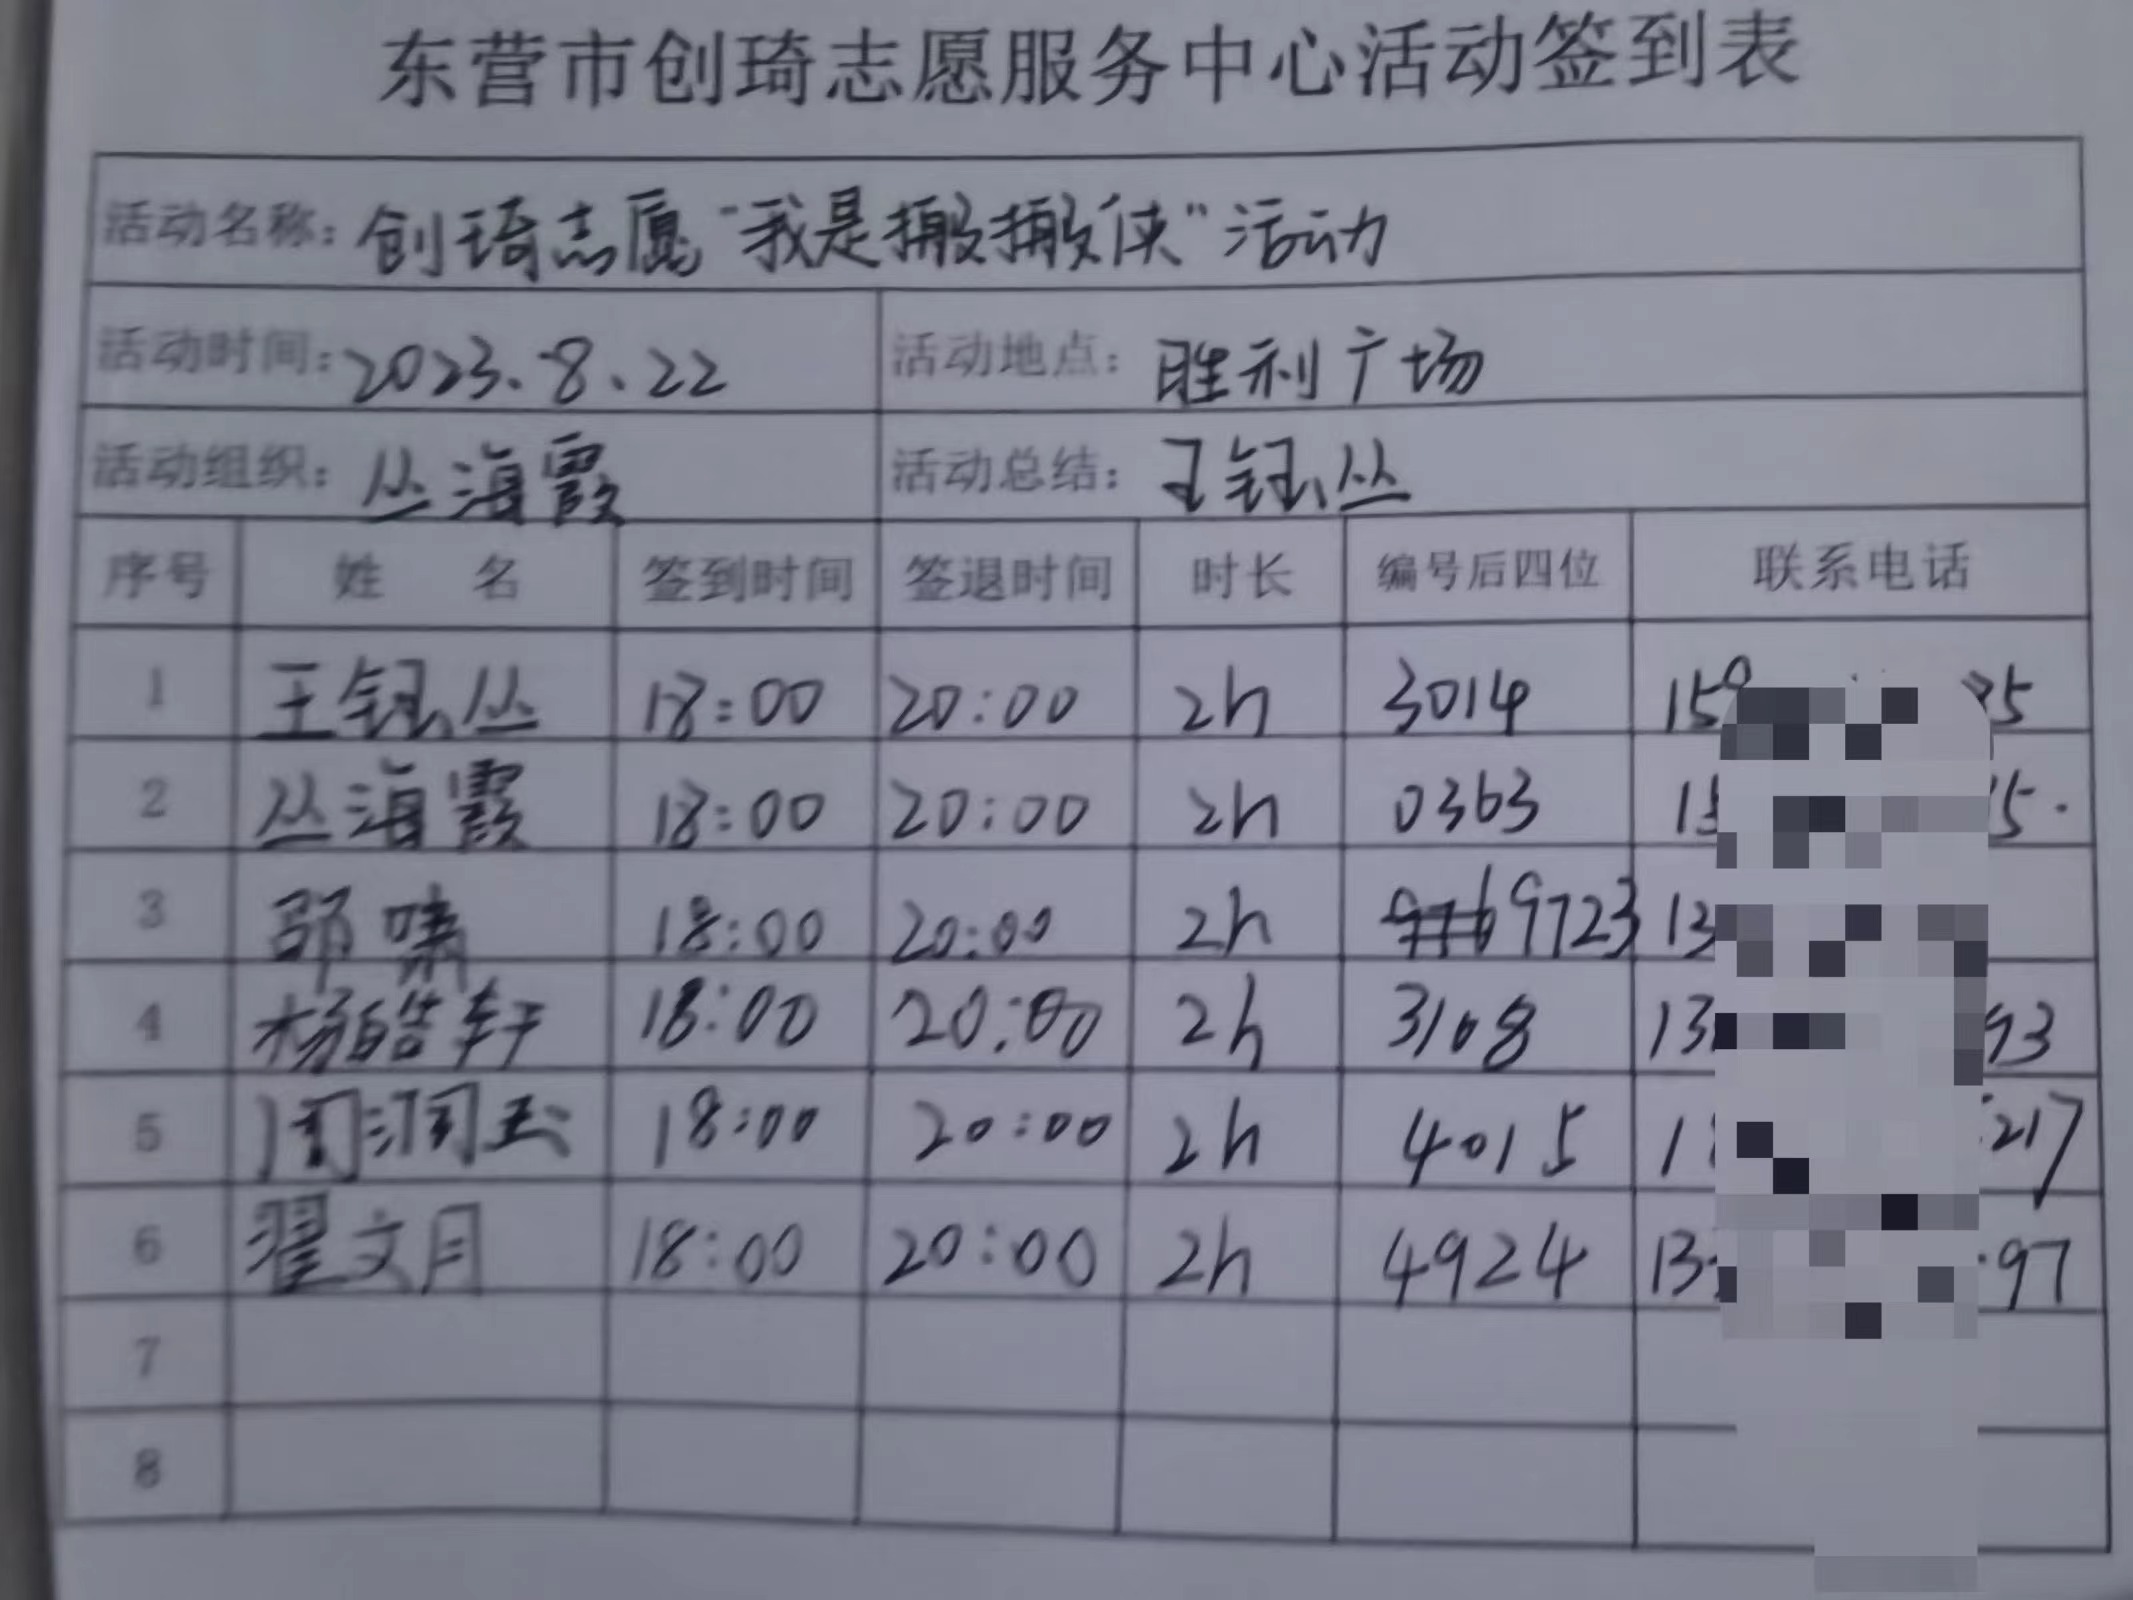 东营市创琦志愿服务中心活动签到表
活动名称：创琦志愿“我是搬搬侠”活动
活动时间：2023.8.22 活动地点：胜利广场
活动组织：丛海霞 活动总结：王钰丛
序号 姓 名 签到时间 签退时间 时长 编号后四位 联系电话
1 王钰丛 18:00 20:00 2h 3014 15
2 丛海霞 18:00 20:00 2h 0363 1
3 邵啸 18:00 20:00 2h 9723 13
4 杨皓轩 18:00 20:00 2h 3108 13 93
5 周润玉 18:00 20:00 2h 4015 1 217
6 翟文月 18:00 20:00 2h 4924 13 97
7
8